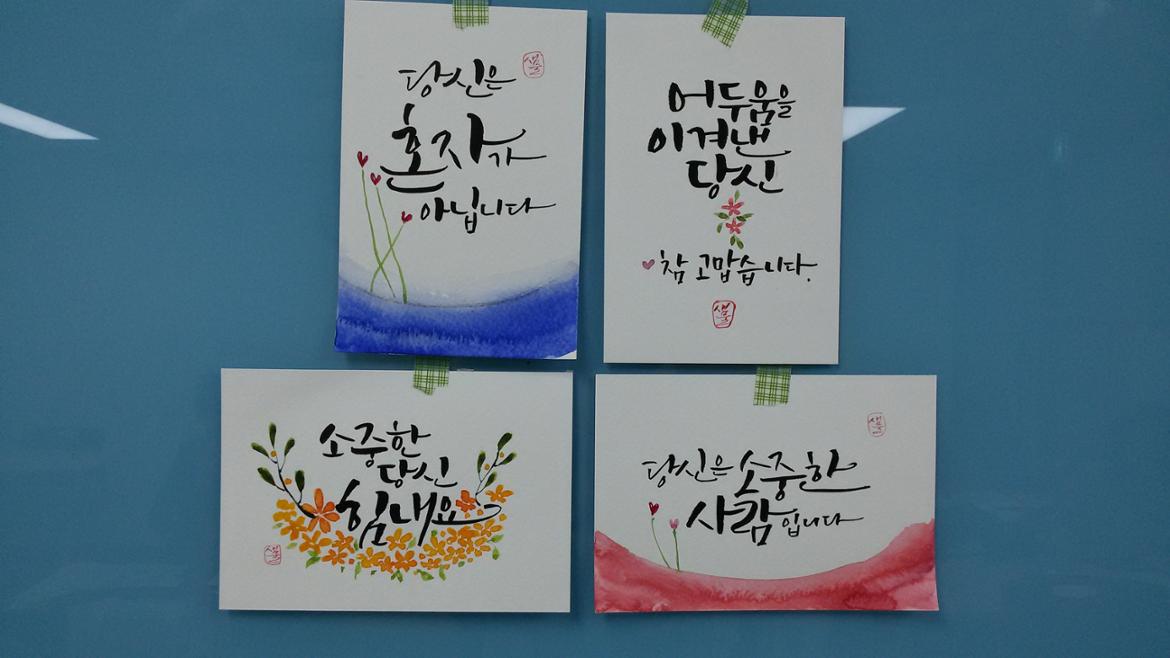 당신은
혼자가
아닙니다
어두움을
이겨낸
당신
참 고맙습니다.
소중한
당신
힘내요
당신은 소중한
사람입니다